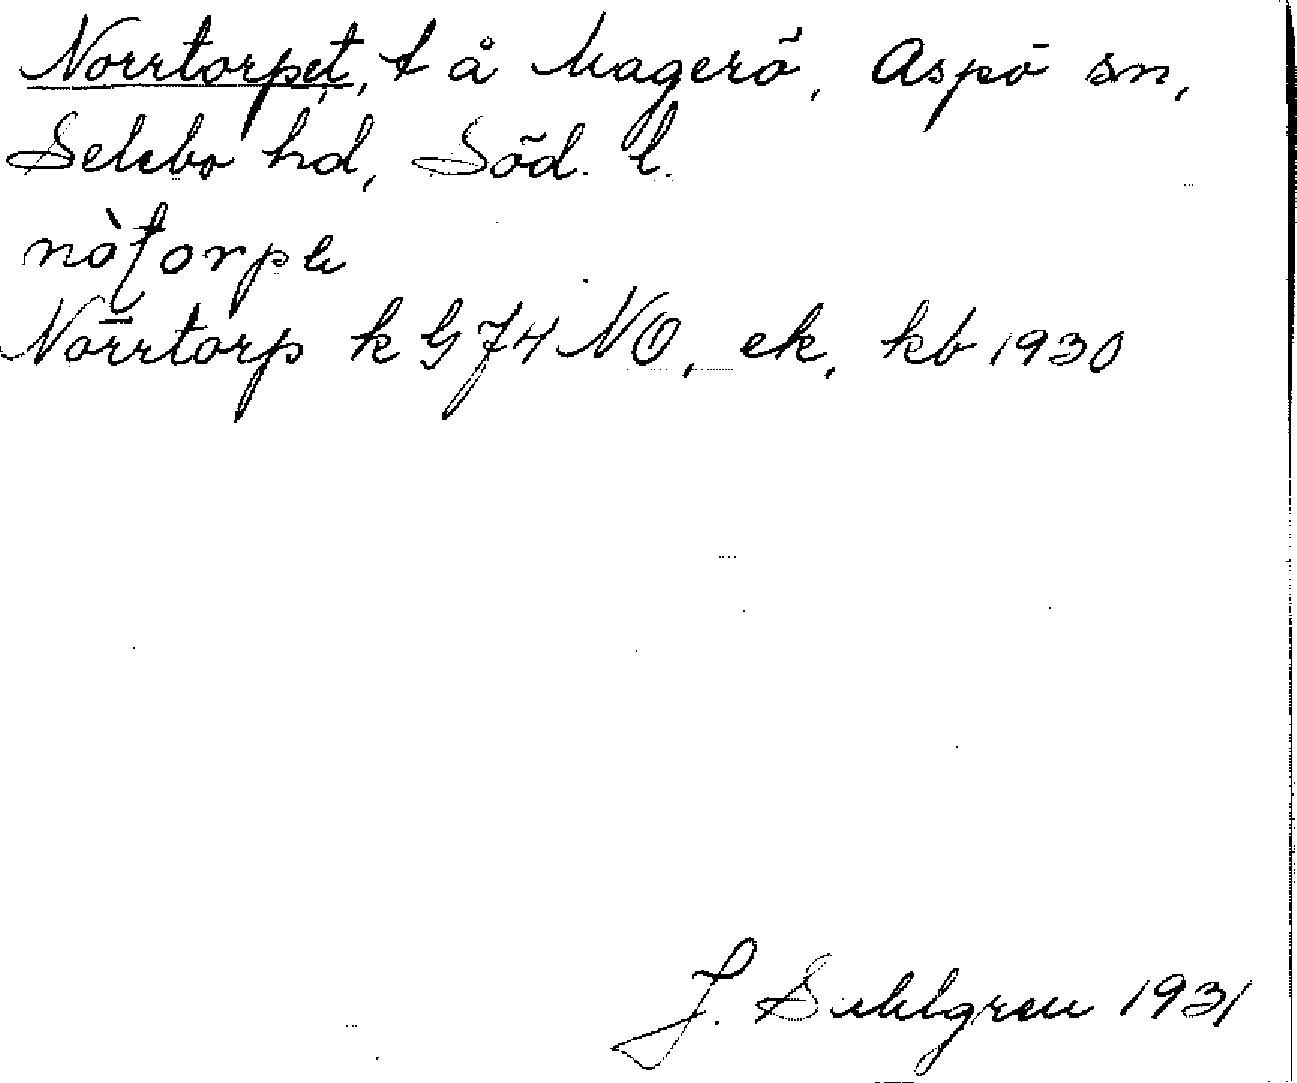 Norrtorpet, t å Magerö, Aspö sn,
Selebo hd, Söd. l.
Norrtorp k G 74 NO, ek, kb 1930
J. Sahlgren 1931